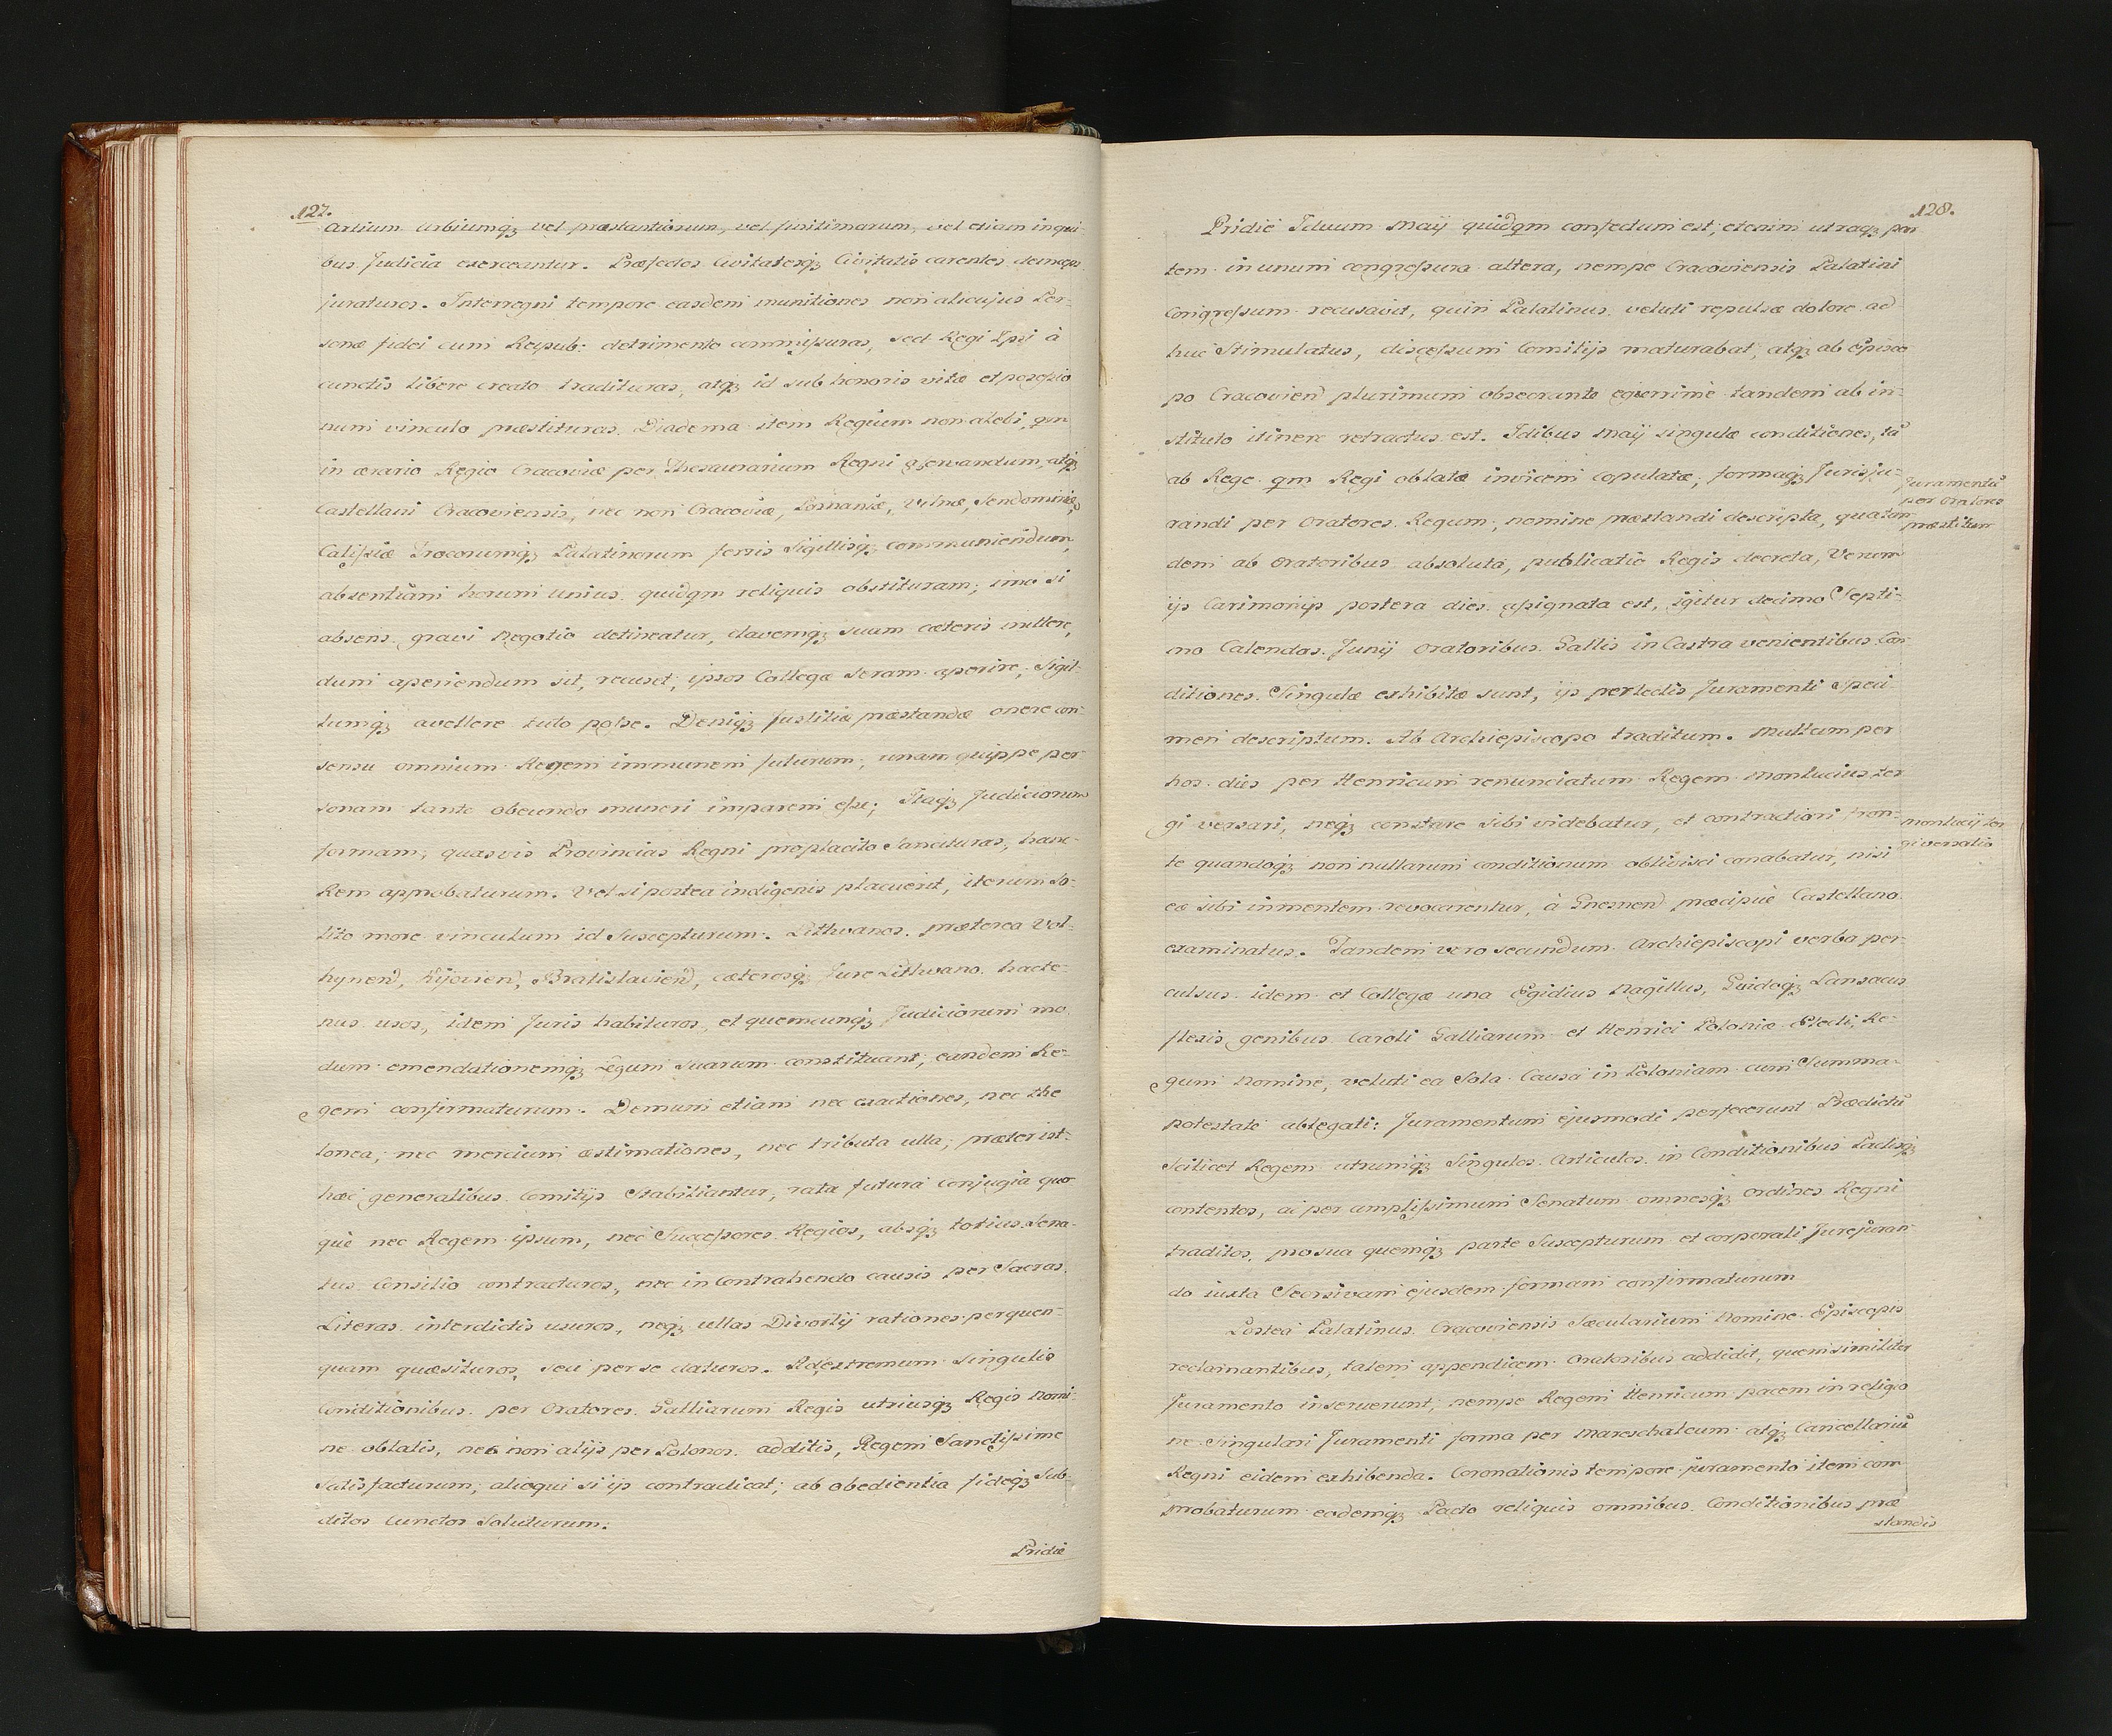 127.
Artium Urbiumq3 vel præstantiorum, vel finitimarum, vel etiam in qui-
bus Judicia exerceantur. Præfectos Civitatesq3 Civitatis carentes deinceps
juraturos. Interregni tempore easdem munitiones non alicujus Per-
sonæ fidei cum Reipub: detrimento commissuras, sed Regi Ipsi à
cunctis libere creato tradituras, atq3 id sub honoris vitæ et possessio
num vinculo præstituras. Diadema item Regium non alebi, qm
in ærario Regio Cracoviæ per Thesaurarium Regni asservandum, atq3
Castellani Cracoviensis, nec non Cracoviæ, Posnaniæ, Vilnæ, Sendomiriæ,
Calissiæ Trocorumq3 Palatinorum serris Sigillisq3 communiendum,
absentiam horum unius quidqm reliquis obstituram; imo si
absens gravi Negotio detineatur, clavemq3 suum cæteris mittere,
dum aperiendum sit, recuset, ipsos Collegæ seram aperire, Sigil-
lumq3 avellere tuto posse. Deniq3 Justitiæ præstandæ onere con-
sensu omnium Regem immunem futurum, unam quippe per
sonam tanto obeundo muneri imparem esse; Itaq3 Judiciorum
formam, quasvis Provincias Regni pro placito Sancituras, hanc-
Rem approbaturum. Vel si postea indigenis placuerit, iterum so-
lito more vinculum id Suscepturum. Lithvanos præterea Vol-
hynen, Kijovien, Bratislavien, cæterosq3 Jure Lithvano hacte-
nus usos, idem Juris habituros, et quemcunq3 Judiciorum mo
dum emendationemq3 Legum Suarum constituant, eandem Re-
gem confirmaturum. Demum etiam nec exactiones, nec the
lonea, nec mercium æstimationes, nec tributa ulla, præter ist-
hæc generalibus Comitijs Stabiliantur, rata futura conjugia quo
què nec Regem ipsum, nec Successores Regios, absq3 totius Sena-
tus Consilio contracturos, nec in Contrahendo causis per Sacras
Literas interdictis usuros, neq3 ullas Divortij rationes perquen-
quam quæsituros, seu per se daturos. Ad extremum singulis
Conditionibus per Oratores Galliarum Regis utriusq3 Regis Nomi-
ne oblatis, nec non alijs per Polonos additis, Regem Sanctissime
Satisfacturum, alioqui si ijs contradicat, ab obedientia fideq3 Sub-
ditos Cunctos Soluturum.
Pridiè
128.
Pridiè Iduum Maij quidqm confectum est; etenim utraq3 par
tem in unum congressura altera, nempe Cracoviensis Palatini
Congressum recusavit, quin Palatinus veluti repulsæ dolore ad
huc Stimulatus, discessum Comitijs maturabat, atq3 ab Episco
po Cracovien plurimum obsecrante egerrimè tandem ab in-
stituto itinere retractus est. Idibus Maij singulæ conditiones, tā
ab Rege qm Regi oblatæ invicem copulatæ, formaq3 Jurisju-
randi per Oratores Regum nomine præstandi descripta, qua tan
dem ab Oratoribus absoluta, publicatio Regis decreta, Verum
ijs Cærimonijs postera dies assignata est, igitur decimo Septi-
mo Calendas Junij Oratoribus Gallis in Castra venientibus Con
ditiones Singulæ exhibitæ sunt, ijs perlectis Juramenti Speci-
men descriptum. Ab Archiepiscopo traditum. Multum per
hos dies per Henricum renunciatum Regem Monlucius ter
gi versari, neq3 constare sibi videbatur, et contractiori fron-
te quandoq3 non nullarum conditionum oblivisci conabatur, nisi
eæ sibi in mentem revocarentur, à Gnesnen præcipuè Castellano
examinatus. Tandem vero secundum Archiepiscopi verba per-
culsus idem et Collegæ una Egidius Nagillus, Guidoq3 Lansacus
flexis genibus Caroli Galliarum et Henrici Poloniæ Electi, Re-
gum Nomine, veluti ea Sola Causa in Poloniam cum Summa-
potestate ablegati: Juramentum ejusmodi perfecerunt Prædictū
Scilicet Regem utrumq3 Singulos Articulos in Conditionibus Pactisq3
contentos, ac per amplissimum Senatum omnesq3 Ordines Regni
traditos, pro sua quemq3 parte Suscepturum et corporali Jurejuran-
do iuxta Seorsivam ejusdem formam confirmaturum
Postea Palatinus Cracoviensis Sæcularium Nomine Episcopis
reclamantibus, talem appendicem Oratoribus addidit, quem similiter
Juramento inseruerunt, nempe Regem Henricum pacem in religio
ne Singulari Juramenti forma per Mareschalcum atq3 Cancellariū
Regni eidem exhibenda. Coronationis tempore juramento item com
probaturum eodemq3 Pacto reliquis omnibus Conditionibus præ
standis
Juramentū
per Oratores
præstitum
Monlucij ter
giversatio